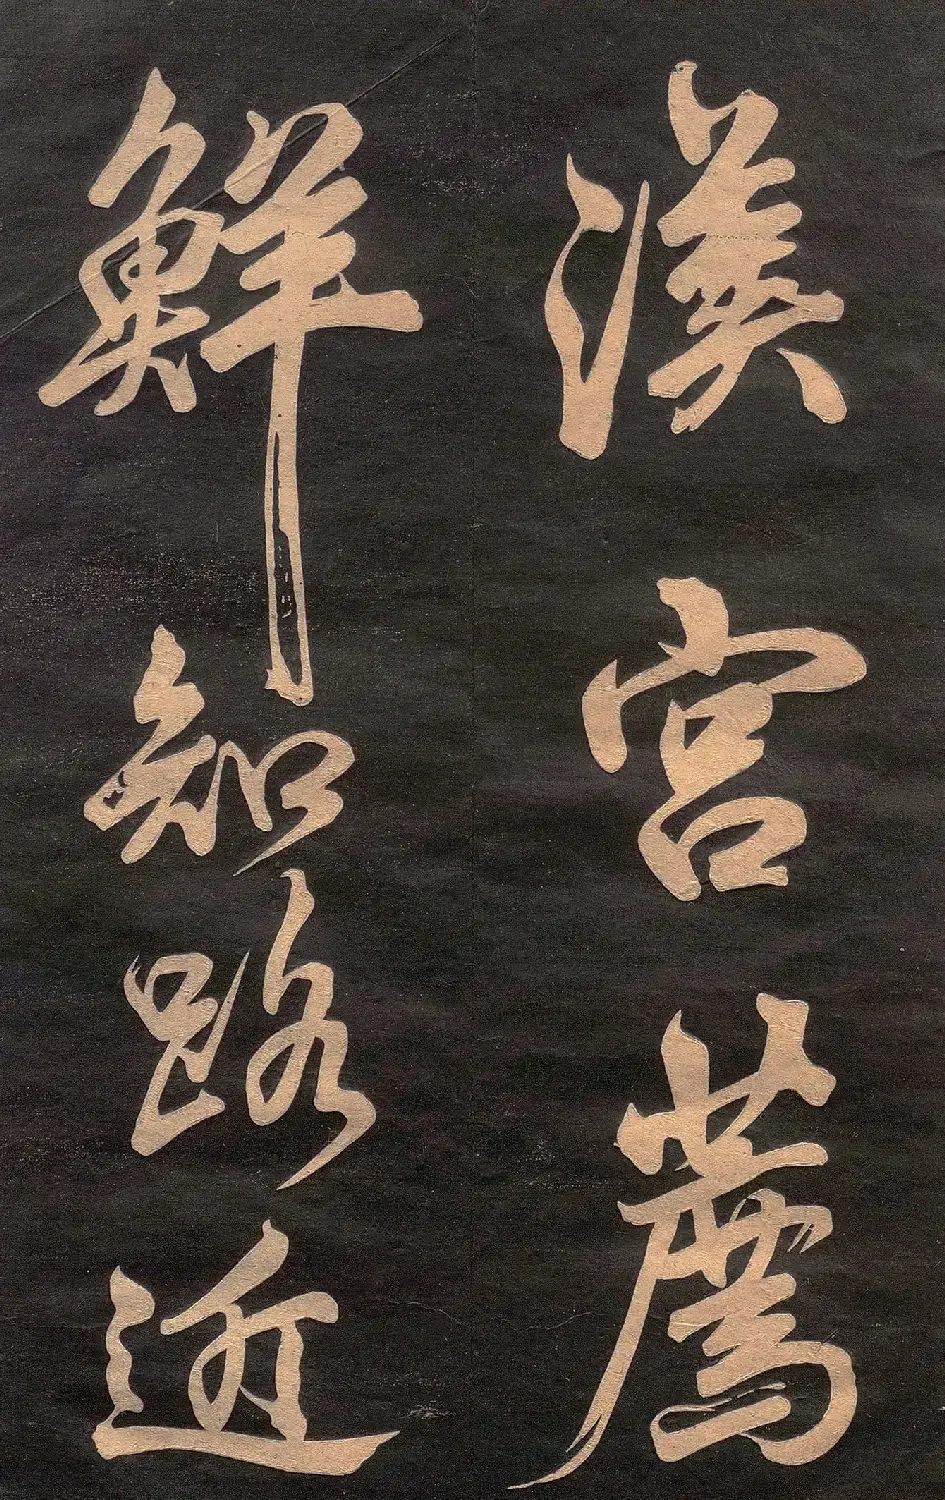 漢宮薦
鮮知路近